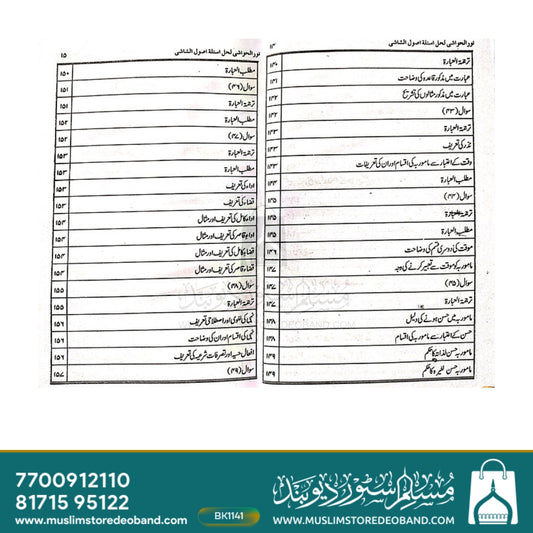 نور الحواشی لحل اسئلة اصول الشاشی ۱۴
ترجمۃ العبارۃ ۱۳۰
عبارت میں مذکور قاعدہ کی وضاحت ۱۳۱
عبارت میں مذکور مثالوں کی تشریح ۱۳۲
سوال (۳۳) ۱۳۲
ترجمۃ العبارۃ ۱۳۳
نذر کی تعریف ۱۳۳
وقت کے اعتبار سے مامور بہ کی اقسام اور ان کی تعریفات ۱۳۳
مطلب العبارۃ ۱۳۴
سوال (۳۴) ۱۳۵
ترجمۃ العبارۃ ۱۳۵
مطلب العبارۃ ۱۳۵
موقت کی دوسری قسم کی وضاحت ۱۳۶
مامور بہ کو موقت سے تعبیر کرنے کی وجہ ۱۳۷
سوال (۳۵) ۱۳۷
ترجمۃ العبارۃ ۱۳۷
مامور بہ میں حسن ہونے کی دلیل ۱۳۸
حسن کے اعتبار سے مامور بہ کی اقسام ۱۳۸
مامور بہ حسن لذاتہ کا حکم ۱۳۹
مامور بہ حسن لغیرہ کا حکم ۱۳۹
نور الحواشی لحل اسئلة اصول الشاشی ۱۵
مطلب العبارۃ ۱۵۰
سوال (۳۶) ۱۵۱
ترجمۃ العبارۃ ۱۵۱
مطلب العبارۃ ۱۵۲
سوال (۳۷) ۱۵۲
ترجمۃ العبارۃ ۱۵۳
مطلب العبارۃ ۱۵۳
اداء کی تعریف ۱۵۳
قضاء کی تعریف ۱۵۳
اداء کامل کی تعریف اور مثال ۱۵۴
اداء قاصر کی تعریف اور مثال ۱۵۴
قضاء کامل کی تعریف اور مثال ۱۵۴
قضاء قاصر کی تعریف اور مثال ۱۵۴
سوال (۳۸) ۱۵۵
ترجمۃ العبارۃ ۱۵۵
نہی کی لغوی اور اصطلاحی تعریف ۱۵۶
نہی کی اقسام اور ان کی وضاحت ۱۵۶
افعال حسیہ اور تصرفات شرعیہ کی تعریف ۱۵۶
سوال (۳۹) ۱۵۷
مسلم سٹور دیوبند
WWW.MUSLIMSTOREDEOBAND.COM
7700912110
81715 95122
www.muslimstoredeoband.com
BK1141
مسلم سٹور دیوبند
WWW.MUSLIMSTOREDEOBAND.COM